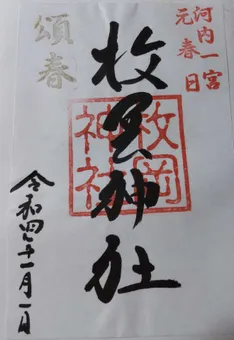 河内一宮
元春日
頌春
枚岡神社
枚岡
神社
令和四年一月一日